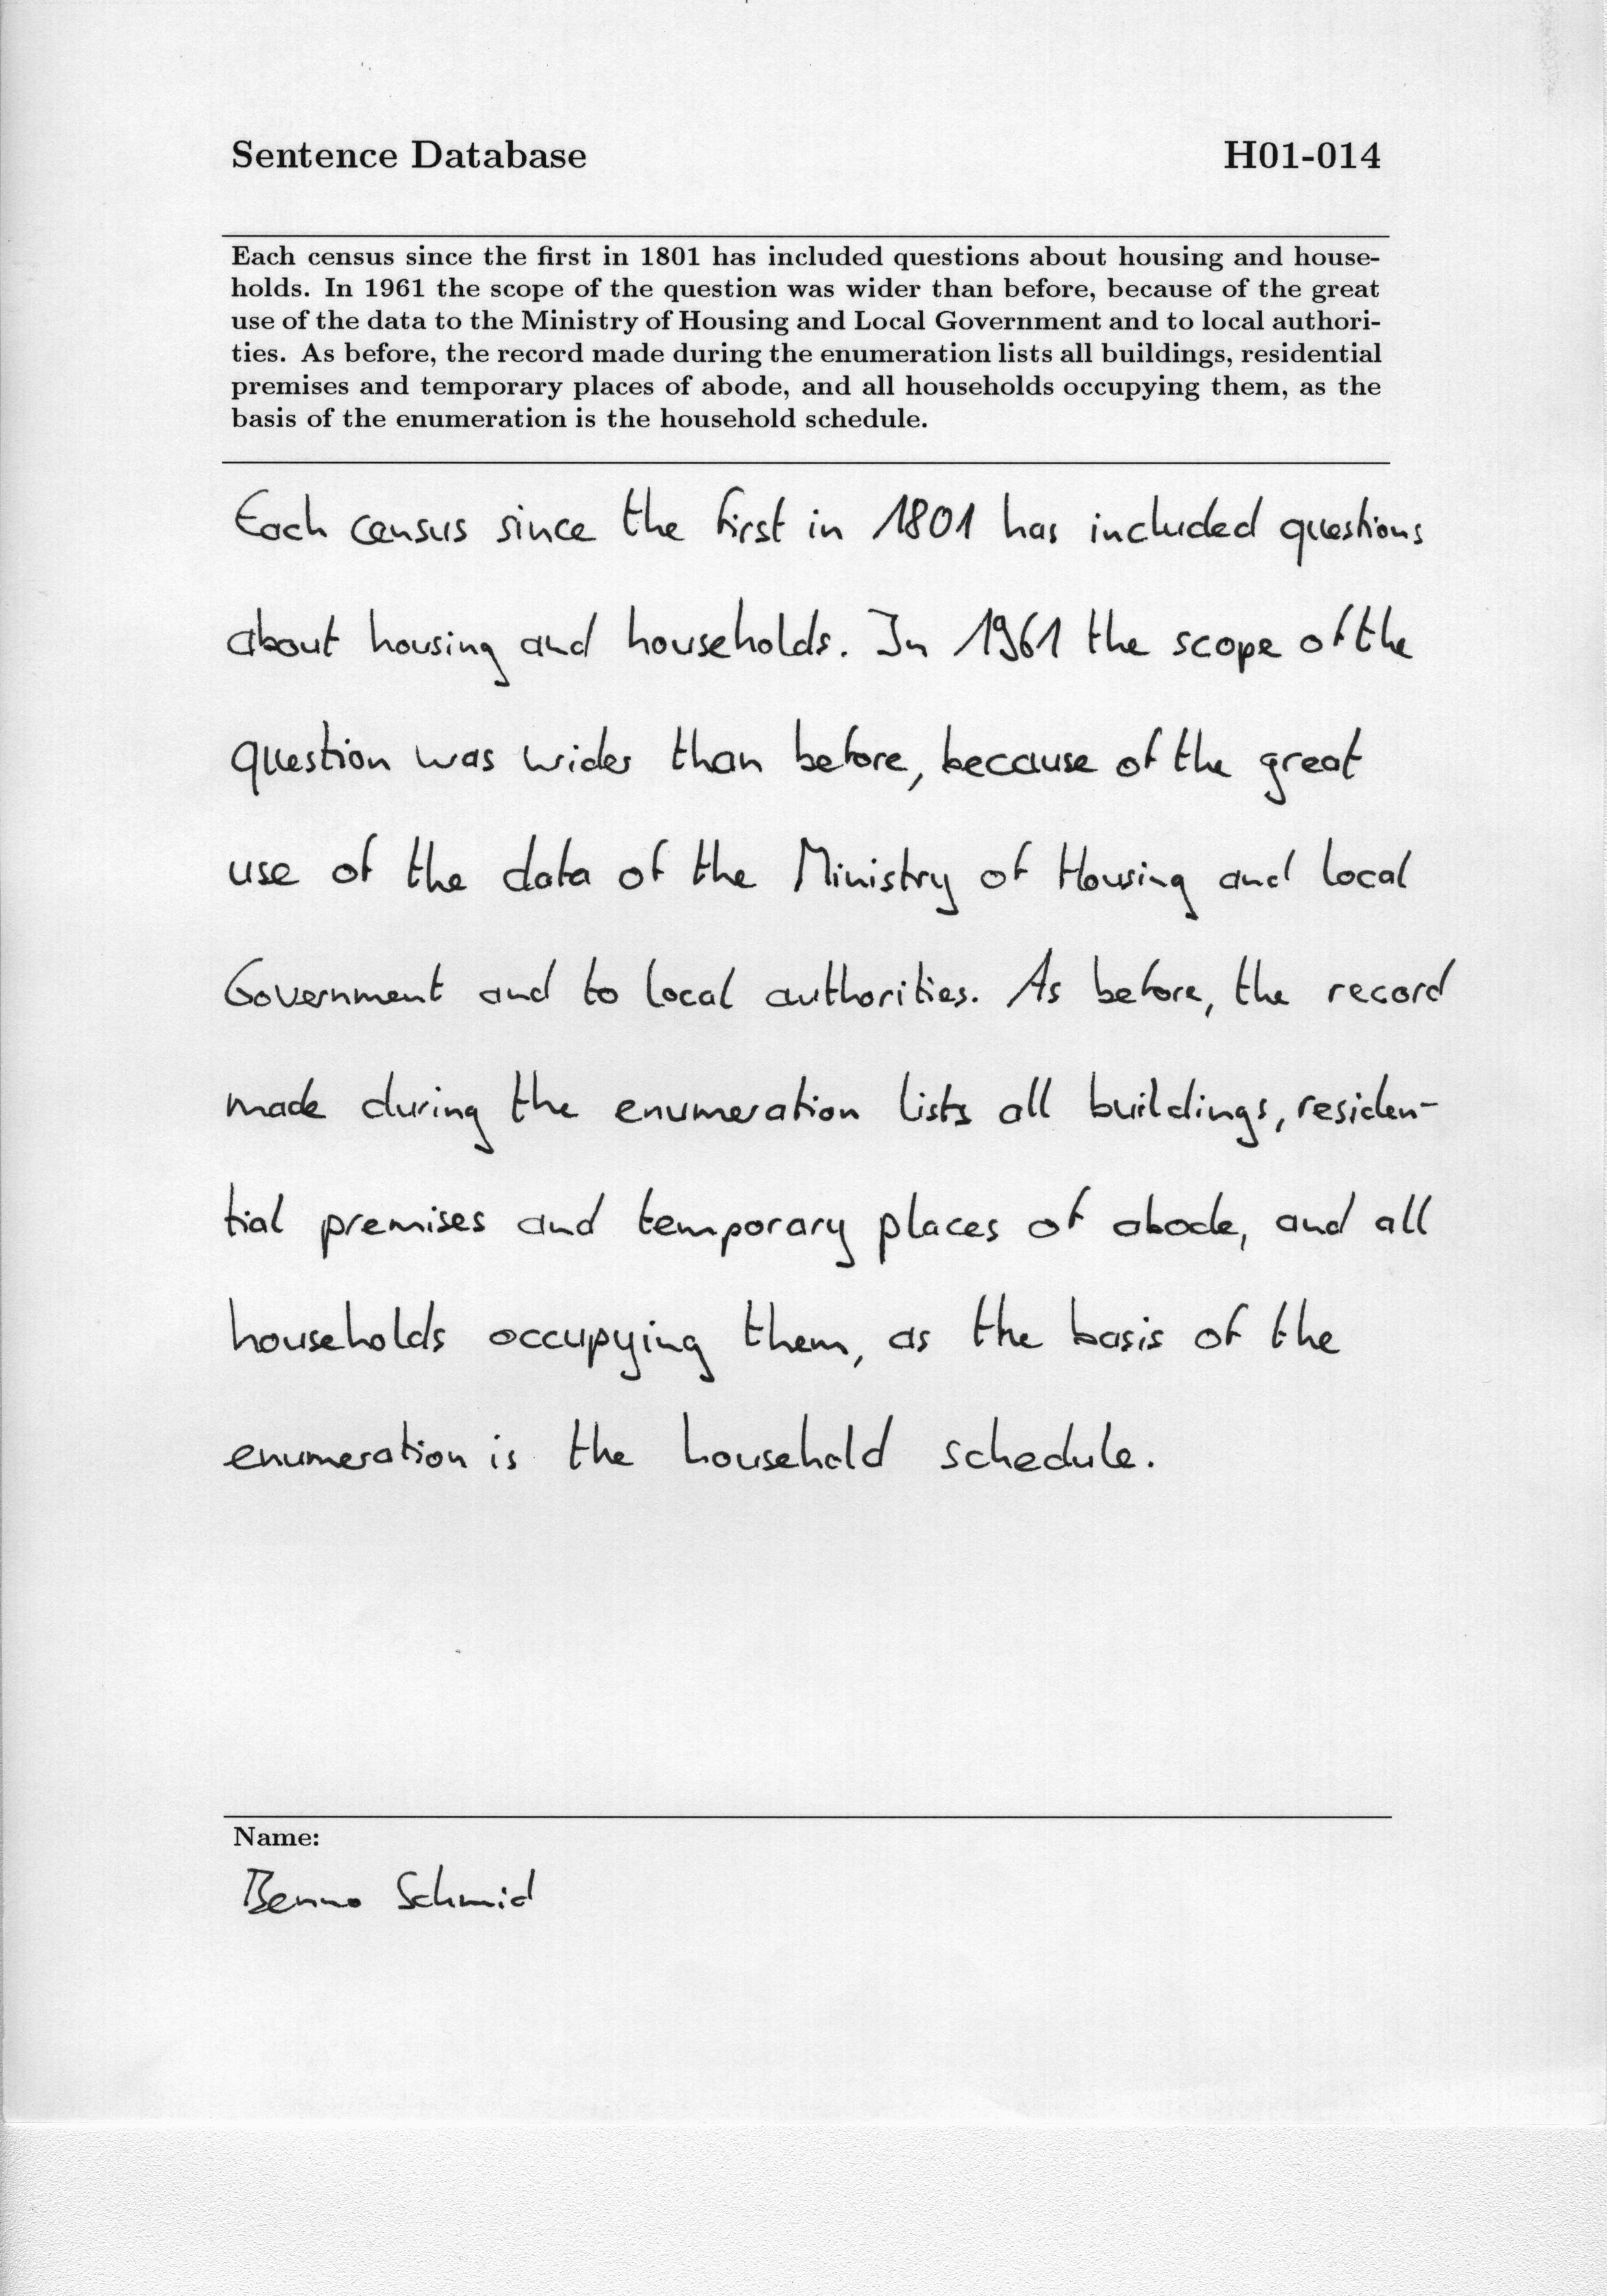 Sentence Database H01-014
Each census since the first in 1801 has included questions about housing and house-
holds. In 1961 the scope of the question was wider than before, because of the great
use of the data to the Ministry of Housing and Local Government and to local authori-
ties. As before, the record made during the enumeration lists all buildings, residential
premises and temporary places of abode, and all households occupying them, as the
basis of the enumeration is the household schedule.
Each census since the first in 1801 has included questions
about housing and households. In 1961 the scope of the
question was wider than before, because of the great
use of the data of the Ministry of Housing and local
Government and to local authorities. As before, the record
made during the enumeration lists all buildings, residen-
tial premises and temporary places of abode, and all
households occupying them, as the basis of the
enumeration is the household schedule.
Name:
Benno Schmid